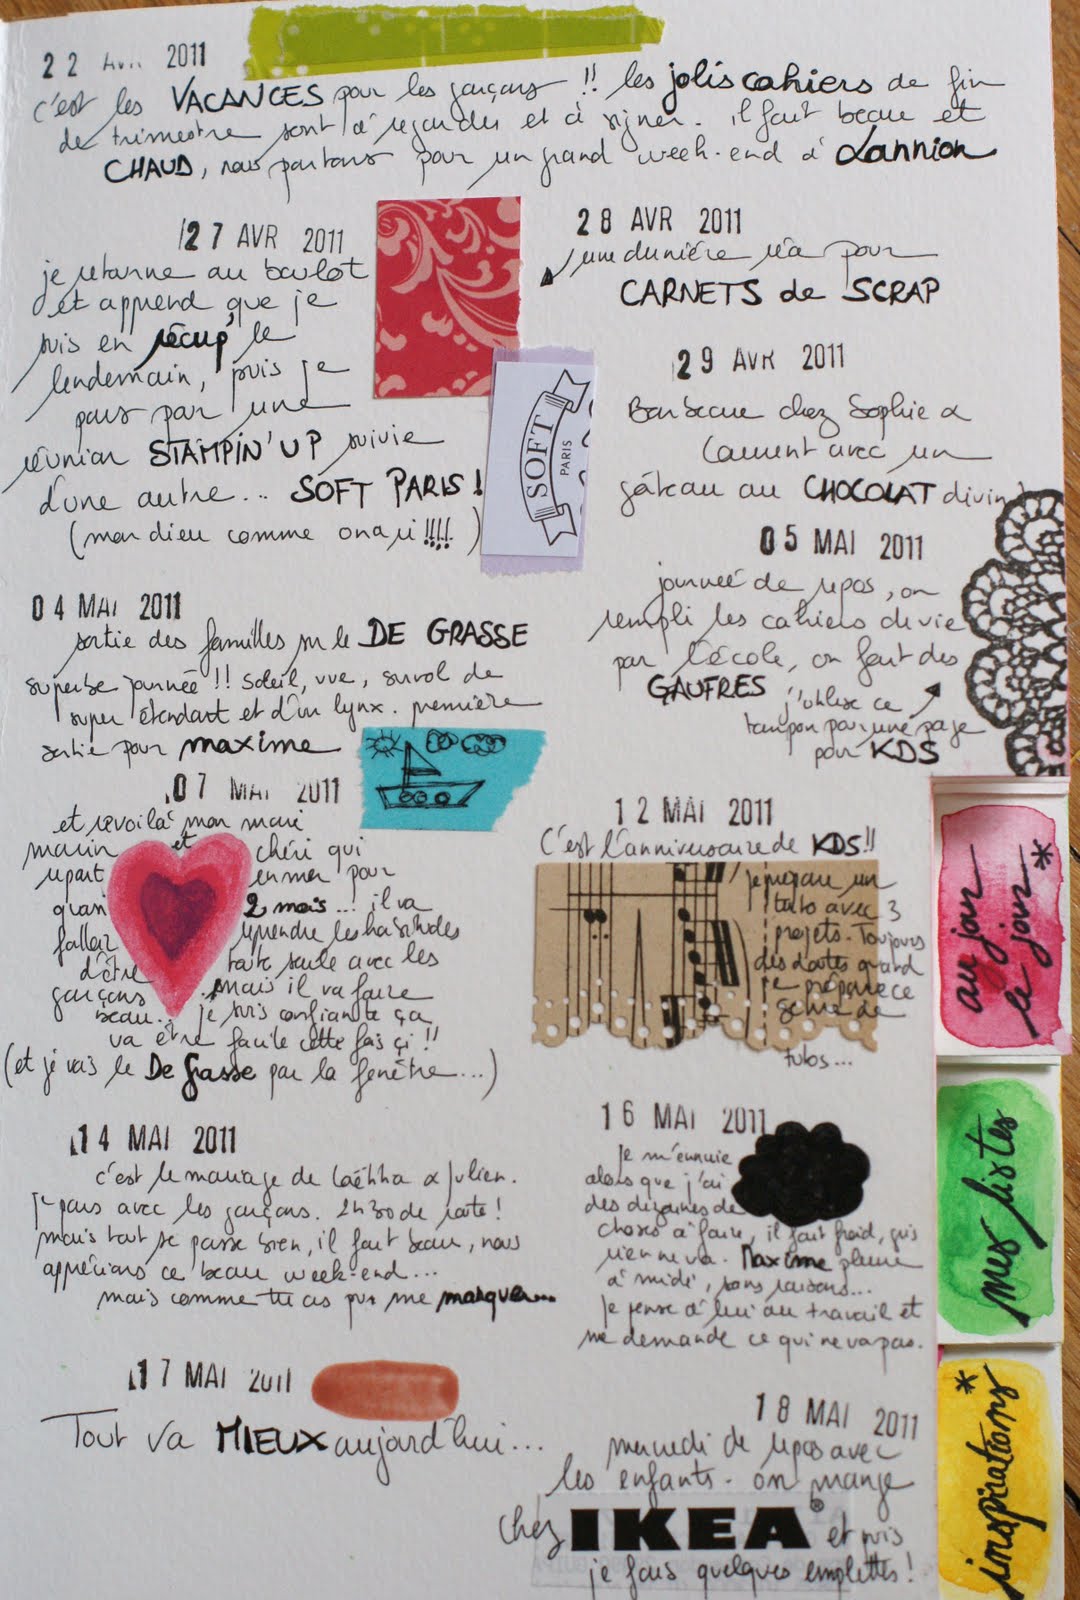 22 AVR 2011
c'est les VACANCES pour les garçons !! les jolis cahiers de fin
de trimestre sont à regarder et à signer. il fait beau et
CHAUD, nous partons pour un grand week-end à Lannion
27 AVR 2011
je retourne au boulot
et apprend que je
suis en récup' le
lendemain, puis je
pars par une
réunion STAMPIN'UP suivie
d'une autre... SOFT PARIS !
(mon dieu comme on a ri !!!!)
SOFT
PARIS
28 AVR 2011
une dernière réa pour
CARNETS de SCRAP
29 AVR 2011
Barbecue chez Sophie &
Laurent avec un
gâteau au CHOCOLAT divin !
04 MAI 2011
sortie des familles sur le DE GRASSE
superbe journée !! soleil, vue, survol de
super étendart et d'un lynx. première
sortie pour maxime
05 MAI 2011
journée de repos, on
rempli les cahiers de vie
par l'école, on fait des
GAUFRES
j'utilise ce
tampon pour une page
pour KDS
07 MAI 2011
et revoilà mon mari
marin et chéri qui
repart en mer pour
quasi 2 mois... il va
falloir reprendre les habitudes
d'être toute seule avec les
garçons mais il va faire
beau... je suis confiante ça
va être facile cette fois çi !!
(et je vais le De Grasse par la fenêtre...)
12 MAI 2011
C'est l'anniversaire de KDS !!
je prépare un
tuto avec 3
projets. Toujours
des dates quand
je prépare ce
genre de
tutos...
14 MAI 2011
c'est le mariage de Laëtitia & Julien.
je pars avec les garçons. 2h30 de route !
mais tout se passe bien, il fait beau, nous
apprécions ce beau week-end...
mais comme tu as pu me manquer...
16 MAI 2011
je m'ennuie
alors que j'ai
des dizaines de
choses à faire, il fait froid, gris
rien ne va. Maxime pleure
à midi, sans raisons...
je pense à lui au travail et
me demande ce qui ne va pas.
17 MAI 2011
Tout va MIEUX aujourd'hui...
18 MAI 2011
mercredi de repos avec
les enfants. on mange
chez IKEA® et puis
je fais quelques emplettes !
au jour
le jour*
mes listes
inspirations*